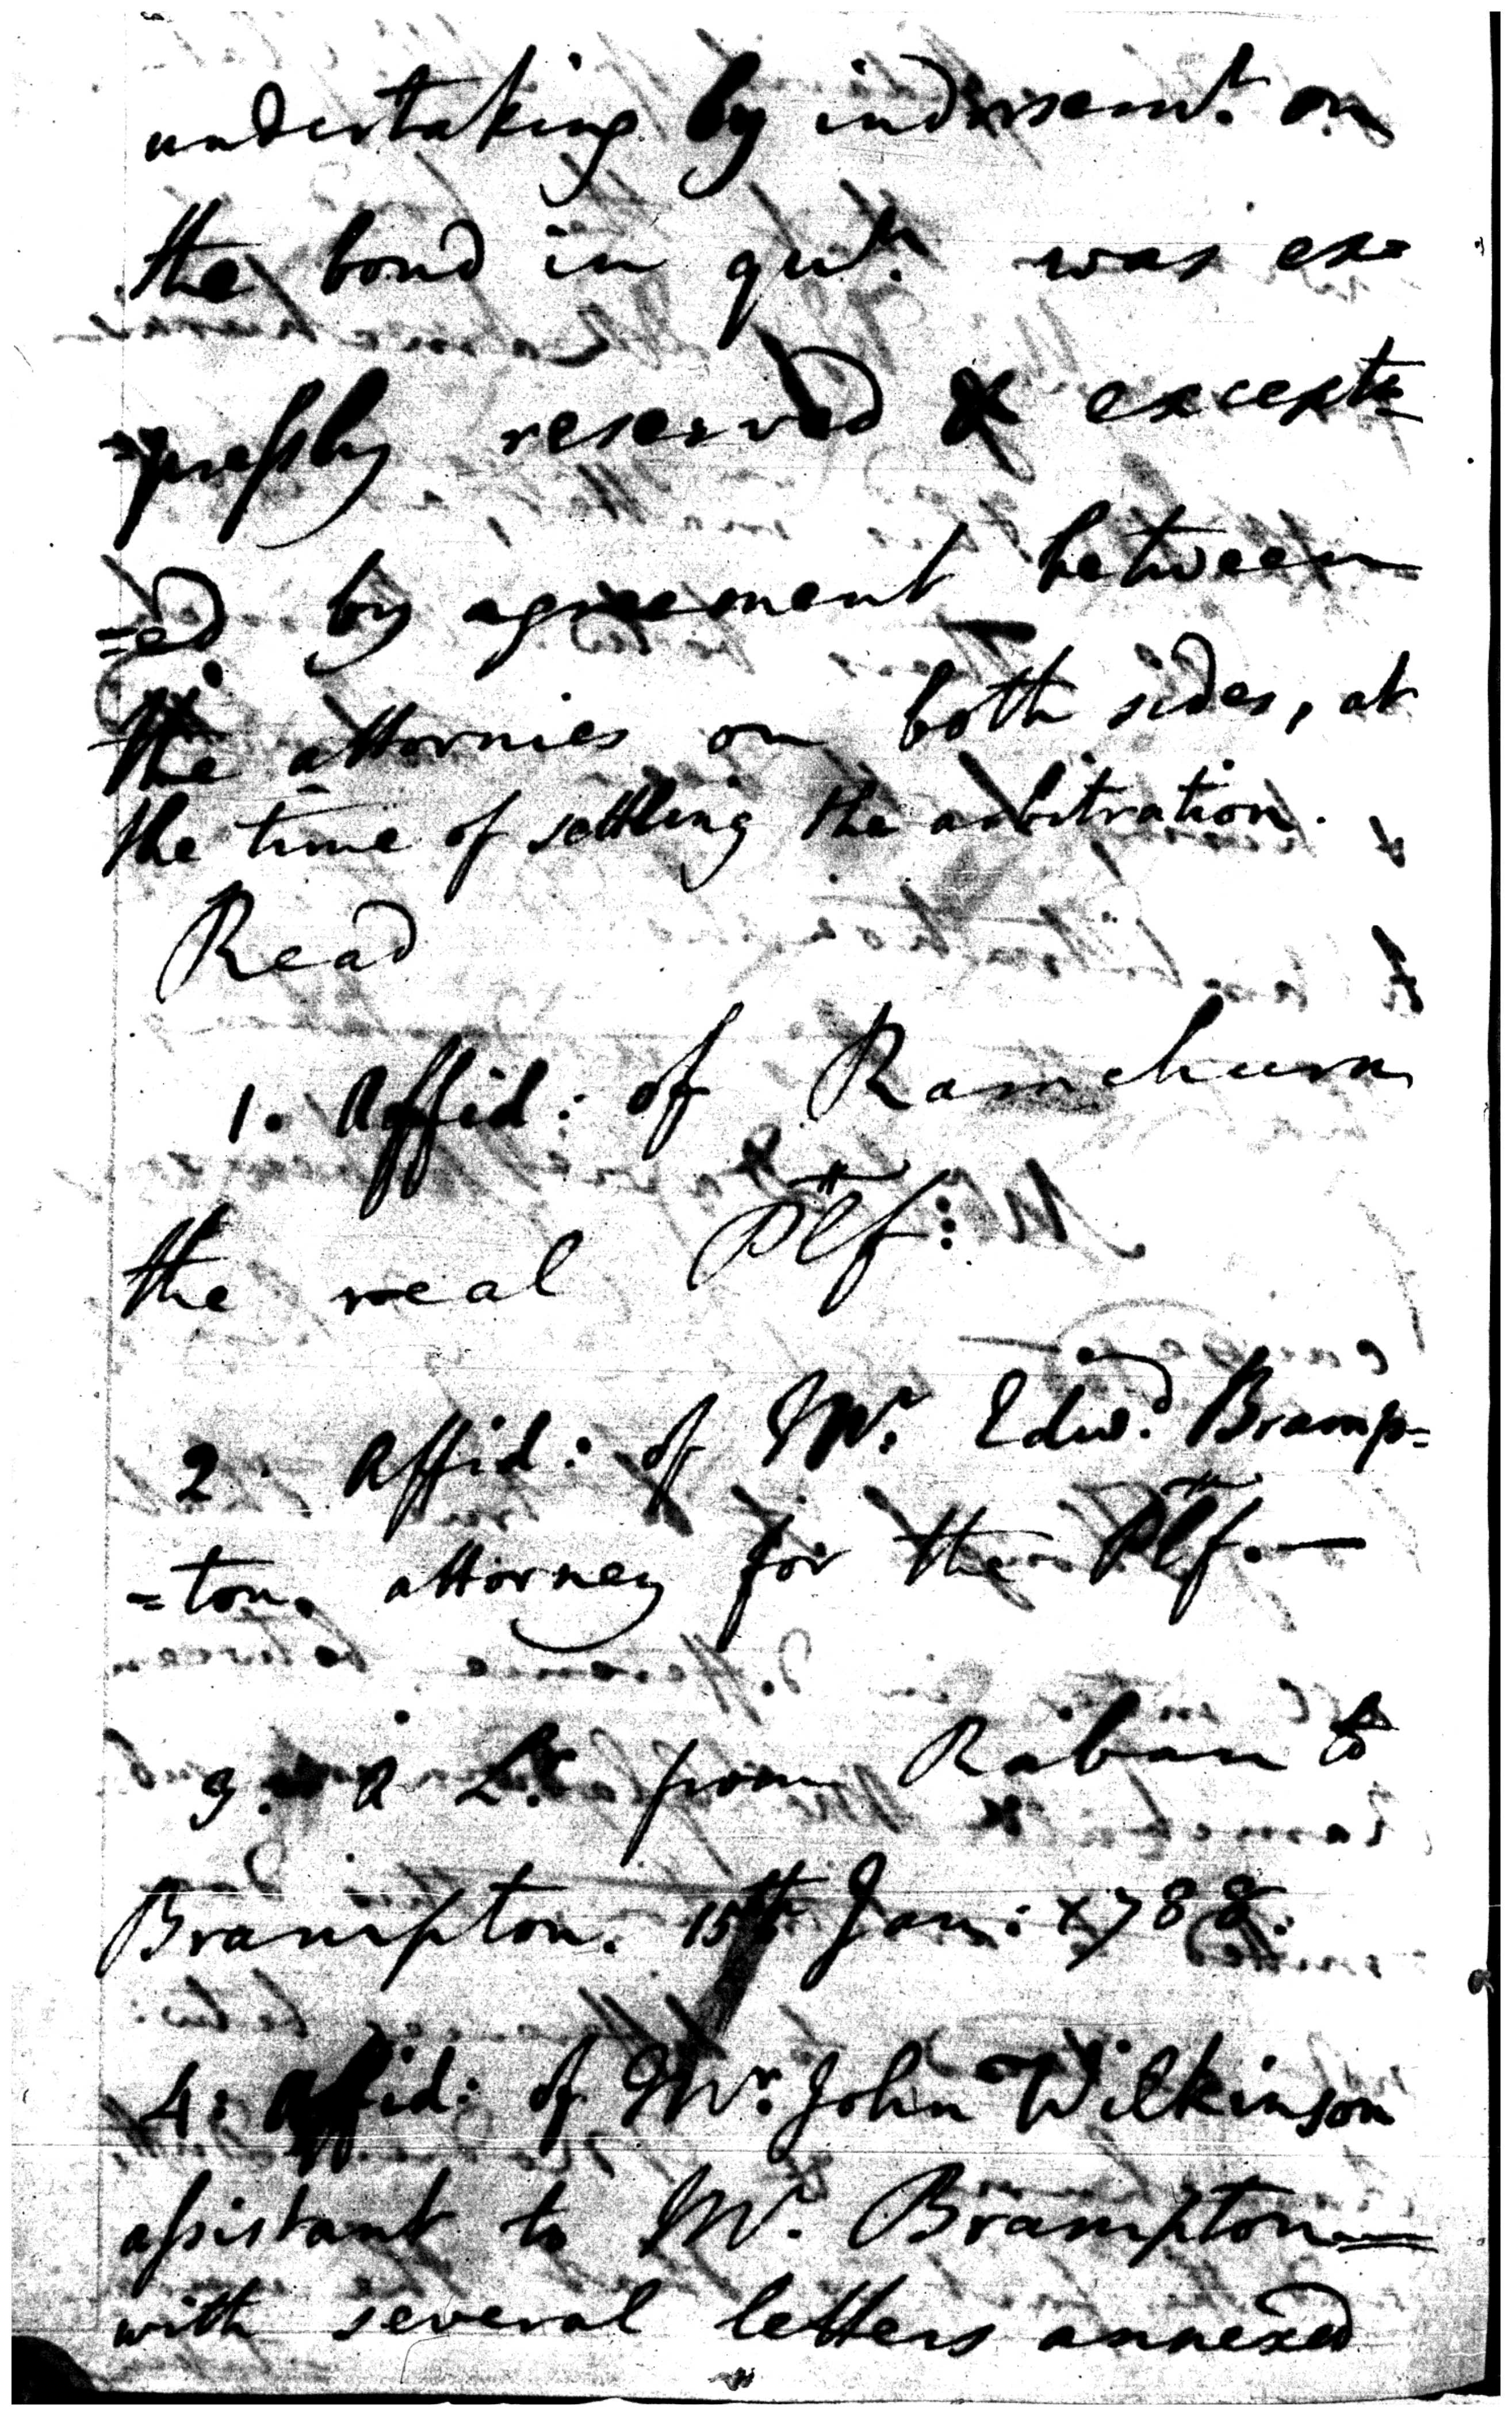 undertaking by indorsemt. on
the bond in qust. was ex=
=pressly reserved & except=
=ed by agreement between
the attornies on both sides, at
the time of settling the arbitration.
Read
1. Affid: of Ramchurn
the real Plf:
2. Affid: of Mr. Edwd. Bramp=
=ton. attorney for the Plf.—
3. A Lr. from Raban to
Brampton. 15th Jan: 1788.
4: Affid: of Mr. John Wilkinson
assistant to Mr. Brampton—
with several letters annexed